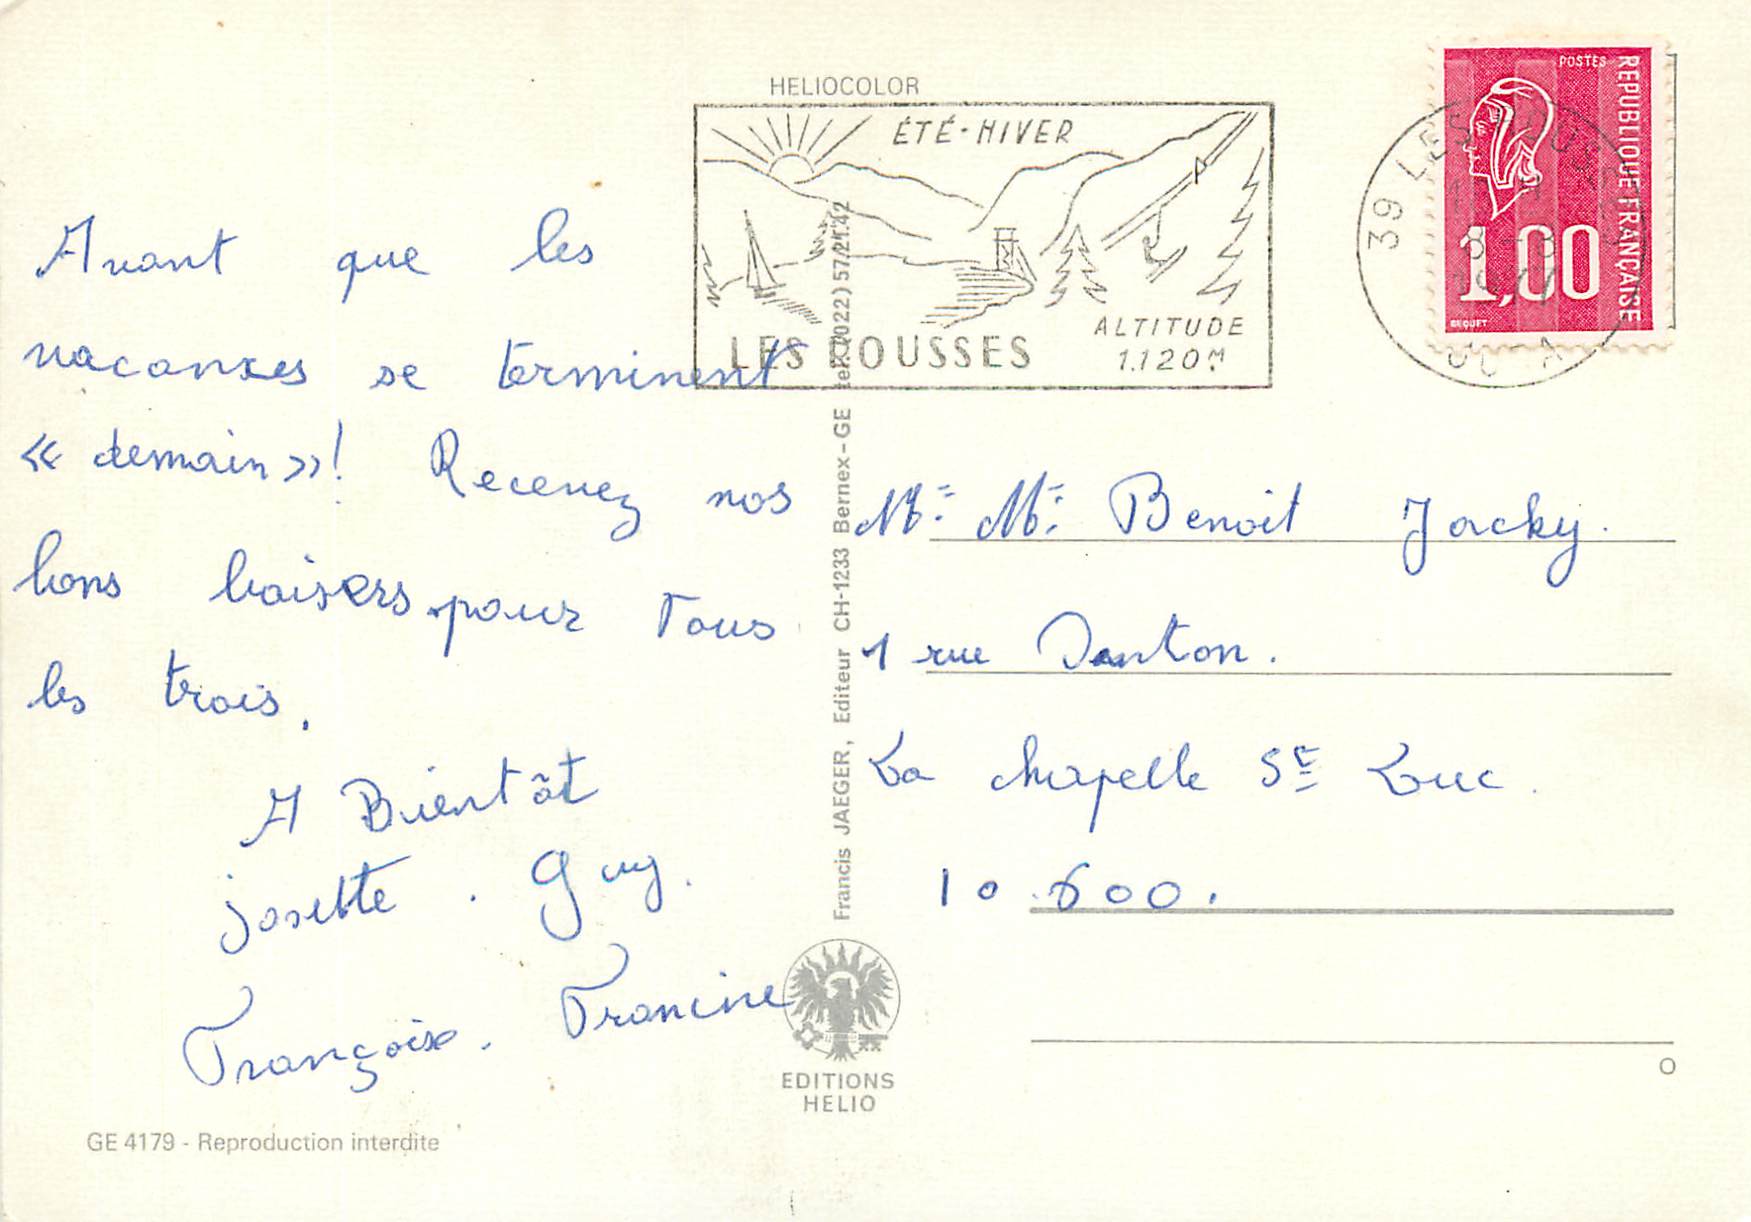 HELIOCOLOR
ÉTÉ-HIVER
LES ROUSSES
ALTITUDE
1.120M
POSTES
REPUBLIQUE FRANÇAISE
1,00
BEQUET
39 LES ROUSSES
JURA
Avant que les
vacances se terminent
« demain »! Recevez nos
bons baisers pour tous
les trois.
A Bientôt
Josette . Guy.
Françoise. Francine
Mr: Mr: Benoit Jacky.
1 rue Danton.
La chapelle St Luc.
10.600.
Francis JAEGER, Editeur CH-1233 Bernex-GE tel. (022) 57.21.42
EDITIONS
HELIO
GE 4179 - Reproduction interdite